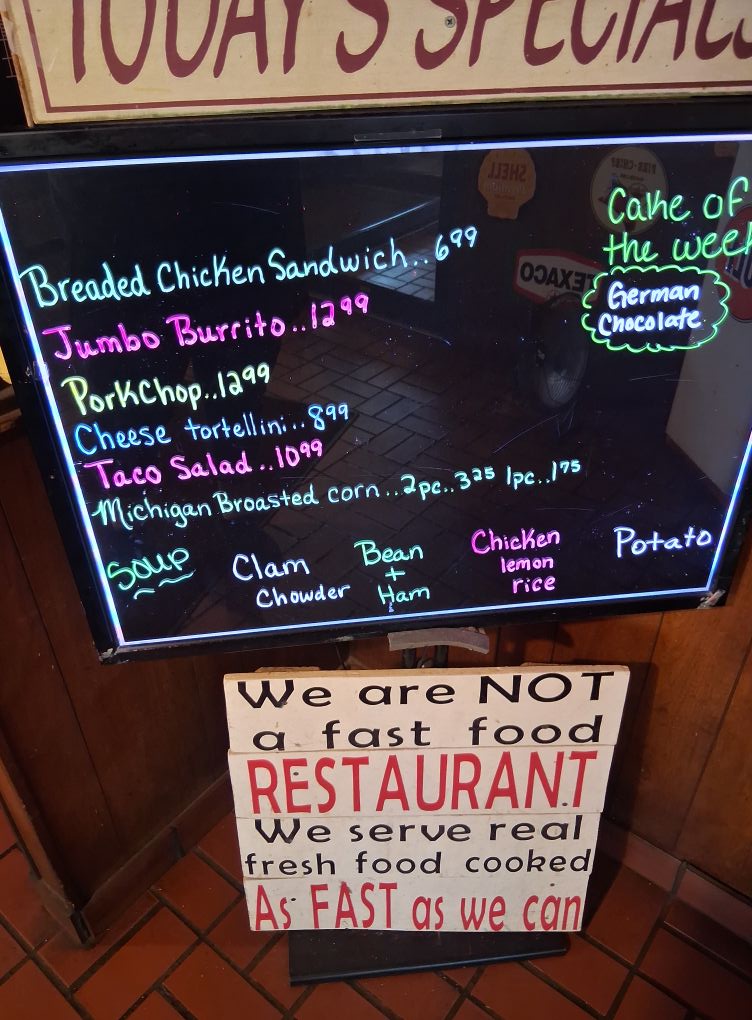 TODAY'S SPECIALS
Cake of
the week
German
Chocolate
Breaded Chicken Sandwich..6.99
Jumbo Burrito..12.99
Pork Chop..12.99
Cheese tortellini...8.99
Taco Salad..10.99
Michigan Broasted corn..2pc..3.25 1pc..1.75
Soup
Clam
Chowder
Bean
+
Ham
Chicken
lemon
rice
Potato
SHELL
TEXACO
We are NOT
a fast food
RESTAURANT
We serve real
fresh food cooked
As FAST as we can